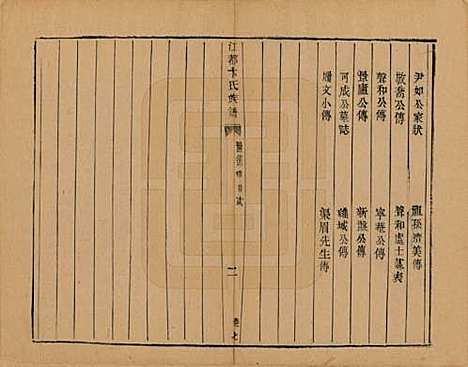 尹如公家狀
龍孫濟美傳
敬齋公傳
聲和處士墓表
聲和公傳
寧菴公傳
景廬公傳
新盤公傳
可成公墓誌
峻域公傳
層文小傳
渠眉先生傳
江都卞氏族譜
目錄
二
卷七